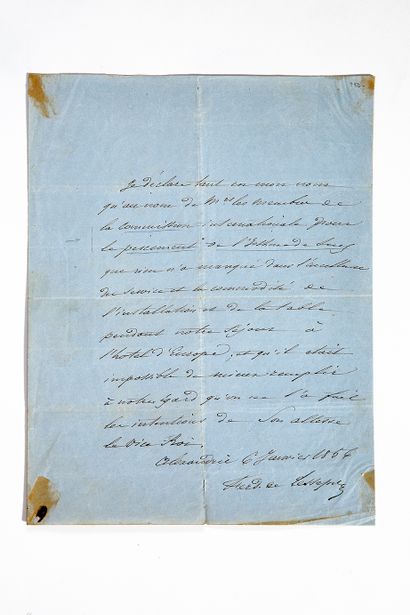 Je déclare tant en mon nom
qu'au nom de Mrs les membres de
la commission internationale pour
le percement de l'Isthme de Suez
que rien n'a manqué dans l'excellence
du service et la commodité de
l'installation et de la table
pendant notre séjour à
l'hotel d'Europe, et qu'il était
impossible de mieux remplir
à notre égard qu'on ne l'a fait
les intentions de Son altesse
le Vice Roi.
Alexandrie 6 Janvier 1856
Ferd. de Lesseps